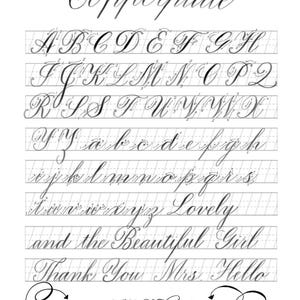 Copperplate
A B C D E F G H
I J K L M N O P Q
R S T U V W X
Y Z a b c d e f g h
i j k l m n o p q r s
t u v w x y z Lovely
and the Beautiful Girl
Thank You Mrs Hello